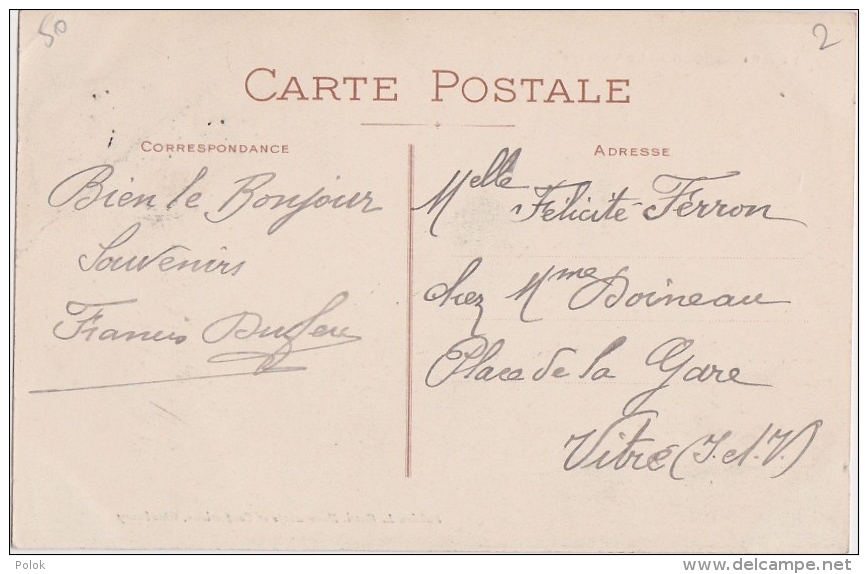 50
2
CARTE POSTALE
CORRESPONDANCE
Bien le Bonjour
Souvenirs
Francis
ADRESSE
Melle Félicité Ferron
chez Mme Doineau
Place de la Gare
Vitré (I.et.V.)
Polok
delcampe.net